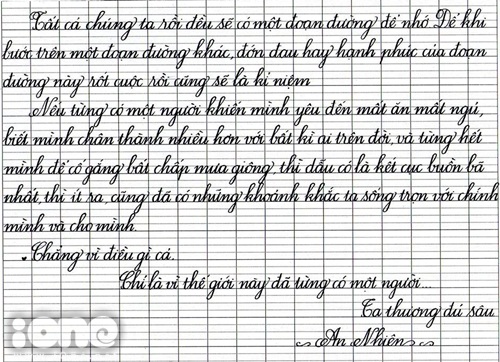 Tất cả chúng ta rồi đều sẽ có một đoạn đường để nhớ. Để khi
bước trên một đoạn đường khác, đớn đau hay hạnh phúc của đoạn
đường này rốt cuộc rồi cũng sẽ là kỉ niệm
Nếu từng có một người khiến mình yêu đến mất ăn mất ngủ,
biết mình chân thành nhiều hơn với bất kì ai trên đời, và từng hết
mình để cố gắng bất chấp mưa giông, thì dẫu có là kết cục buồn bã
nhất, thì ít ra, cũng đã có những khoảnh khắc ta sống trọn với chính
mình và cho mình.
Chẳng vì điều gì cả.
Chỉ là vì thế giới này đã từng có một người...
Ta thương đủ sâu
An Nhiên
ione